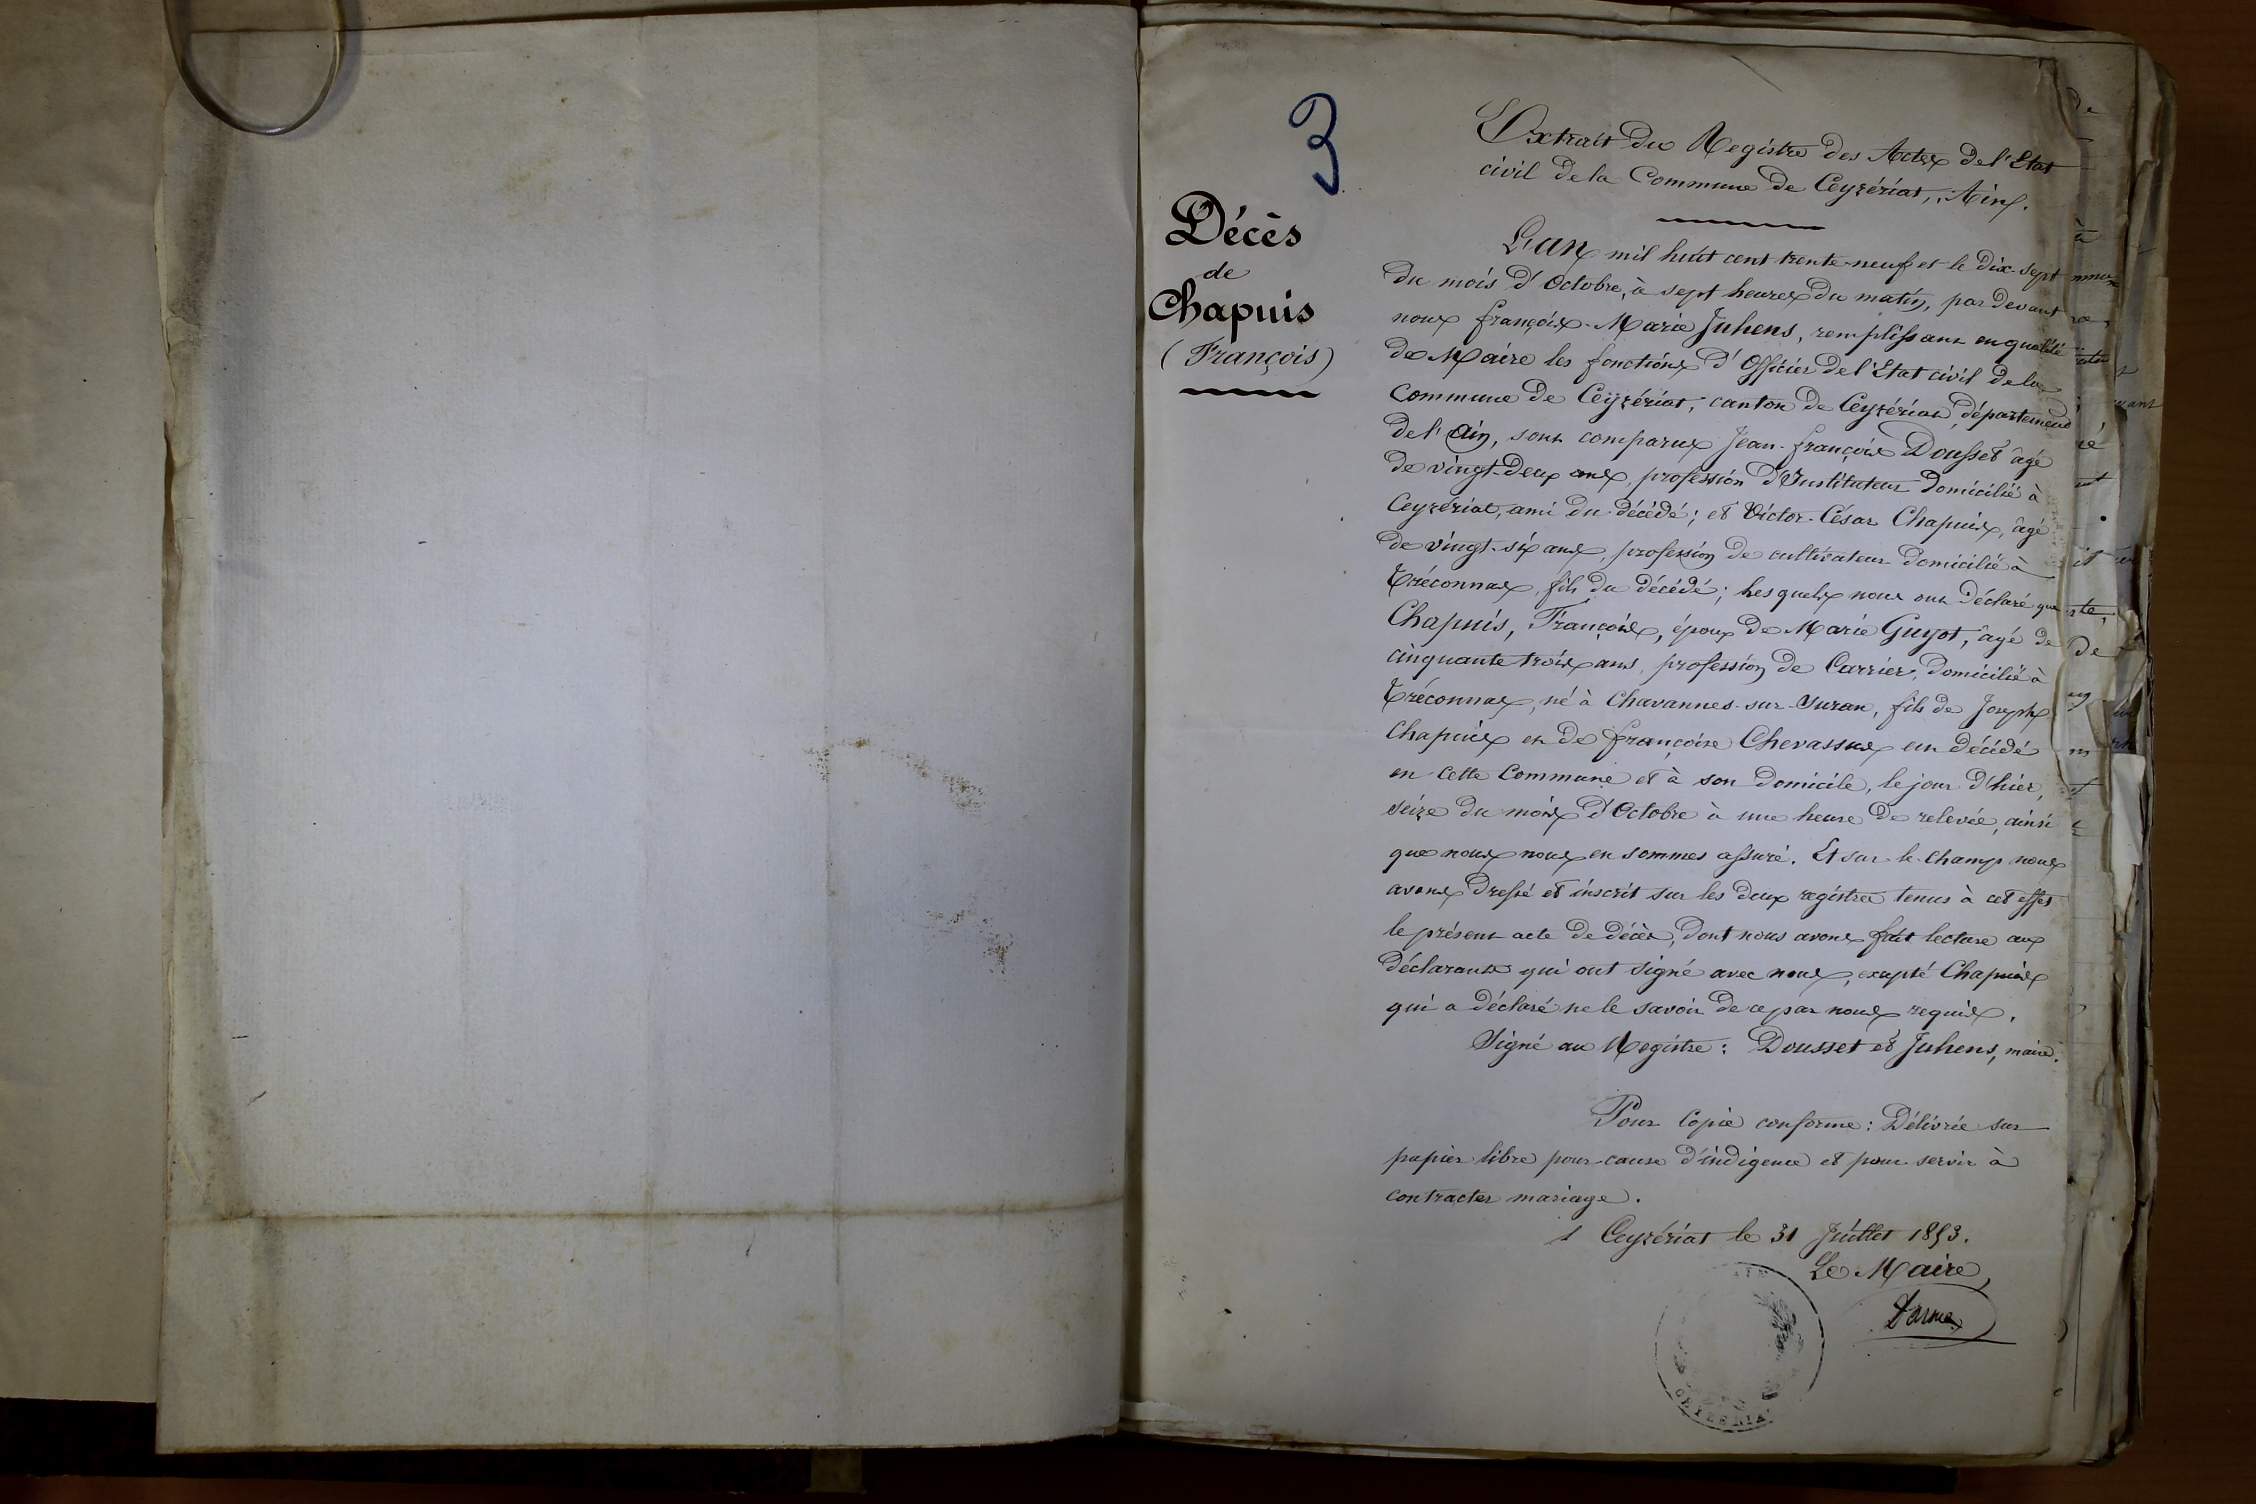 3
Décès
de
Chapuis
(François)
Extrait du Registre des Actes de l'Etat
civil de la Commune de Ceyzériat, Ain.
L'an mil huit cent trente-neuf et le dix-sept
du mois d'Octobre, à sept heures du matin, par devant
nous françois-Marie Juhens, remplissant en qualité
de Maire les fonctions d'Officier de l'Etat civil de la
Commune de Ceyzériat, canton de Ceyzériat, département
de l'Ain, sont comparus Jean-françois Dousset âgé
de vingt-deux ans, profession d'Instituteur domicilié à
Ceyzériat, ami du décédé; et Victor-César Chapuis, âgé
de vingt-six ans, profession de cultivateur domicilié à
Tréconnas, fils du décédé; lesquels nous ont déclaré que
Chapuis, François, époux de Marie Guyot, âgé de
cinquante trois ans, profession de Carrier, domicilié à
Tréconnas, né à Chavannes-sur-Suran, fils de Joseph
Chapuis et de françoise Chevassus est décédé
en cette Commune et à son domicile, le jour d'hier,
seize du mois d'Octobre à une heure de relevée, ainsi
que nous nous en sommes assuré. Et sur le champ nous
avons dressé et inscrit sur les deux registres tenus à cet effet
le présent acte de décès, dont nous avons fait lecture aux
déclarants qui ont signé avec nous, excepté Chapuis
qui a déclaré ne le savoir de ce par nous requis.
Signé au Registre: Dousset et Juhens, maire.
Pour Copie conforme: Délivrée sur
papier libre pour cause d'indigence et pour servir à
contracter mariage.
Ceyzériat le 31 Juillet 1853.
Le Maire,